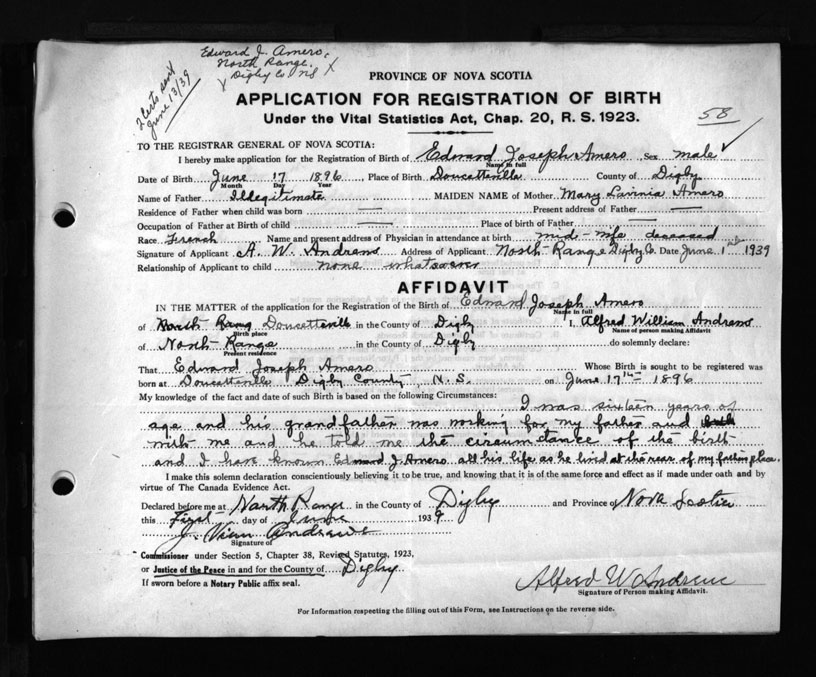 Edward J. Amero,
North Range.
Digby Co NS
2 Certs sent
June 13/39
PROVINCE OF NOVA SCOTIA
APPLICATION FOR REGISTRATION OF BIRTH
Under the Vital Statistics Act, Chap. 20, R. S. 1923.
58
TO THE REGISTRAR GENERAL OF NOVA SCOTIA:
I hereby make application for the Registration of Birth of Edward Joseph Amero, Sex male
Name in full
Date of Birth June 17 1896, Place of Birth Doucetteville County of Digby
Month Day Year
Name of Father Illegitimate MAIDEN NAME of Mother Mary Lavinia Amero
Residence of Father when child was born Present address of Father
Occupation of Father at Birth of child Place of birth of Father
Race French Name and present address of Physician in attendance at birth mid-wife deceased
Signature of Applicant A. W. Andrews Address of Applicant North Range Digby Co. Date June 1st 1939
Relationship of Applicant to child none whatsoever
AFFIDAVIT
IN THE MATTER of the application for the Registration of the Birth of Edward Joseph Amero
Name in full
of North Range Doucetteville in the County of Digby I, Alfred William Andrews
Birth place Name of person making Affidavit
of North Range in the County of Digby do solemnly declare:
Present residence
That Edward Joseph Amero Whose Birth is sought to be registered was
born at Doucetteville Digby County, N.S. on June 17th 1896
My knowledge of the fact and date of such Birth is based on the following Circumstances:
I was sixteen years of
age and his grandfather was working for my father and
with me and he told me the circumstance of the birth
and I have known Edward J. Amero all his life as he lived at the rear of my fathers place.
I make this solemn declaration conscientiously believing it to be true, and knowing that it is of the same force and effect as if made under oath and by
virtue of The Canada Evidence Act.
Declared before me at North Range in the County of Digby and Province of Nova Scotia
this First day of June 1939
J. Vian Andrews
Signature of
Commissioner under Section 5, Chapter 38, Revised Statutes, 1923,
or Justice of the Peace in and for the County of Digby
If sworn before a Notary Public affix seal.
Alfred W Andrews
Signature of Person making Affidavit.
For Information respecting the filling out of this Form, see Instructions on the reverse side.